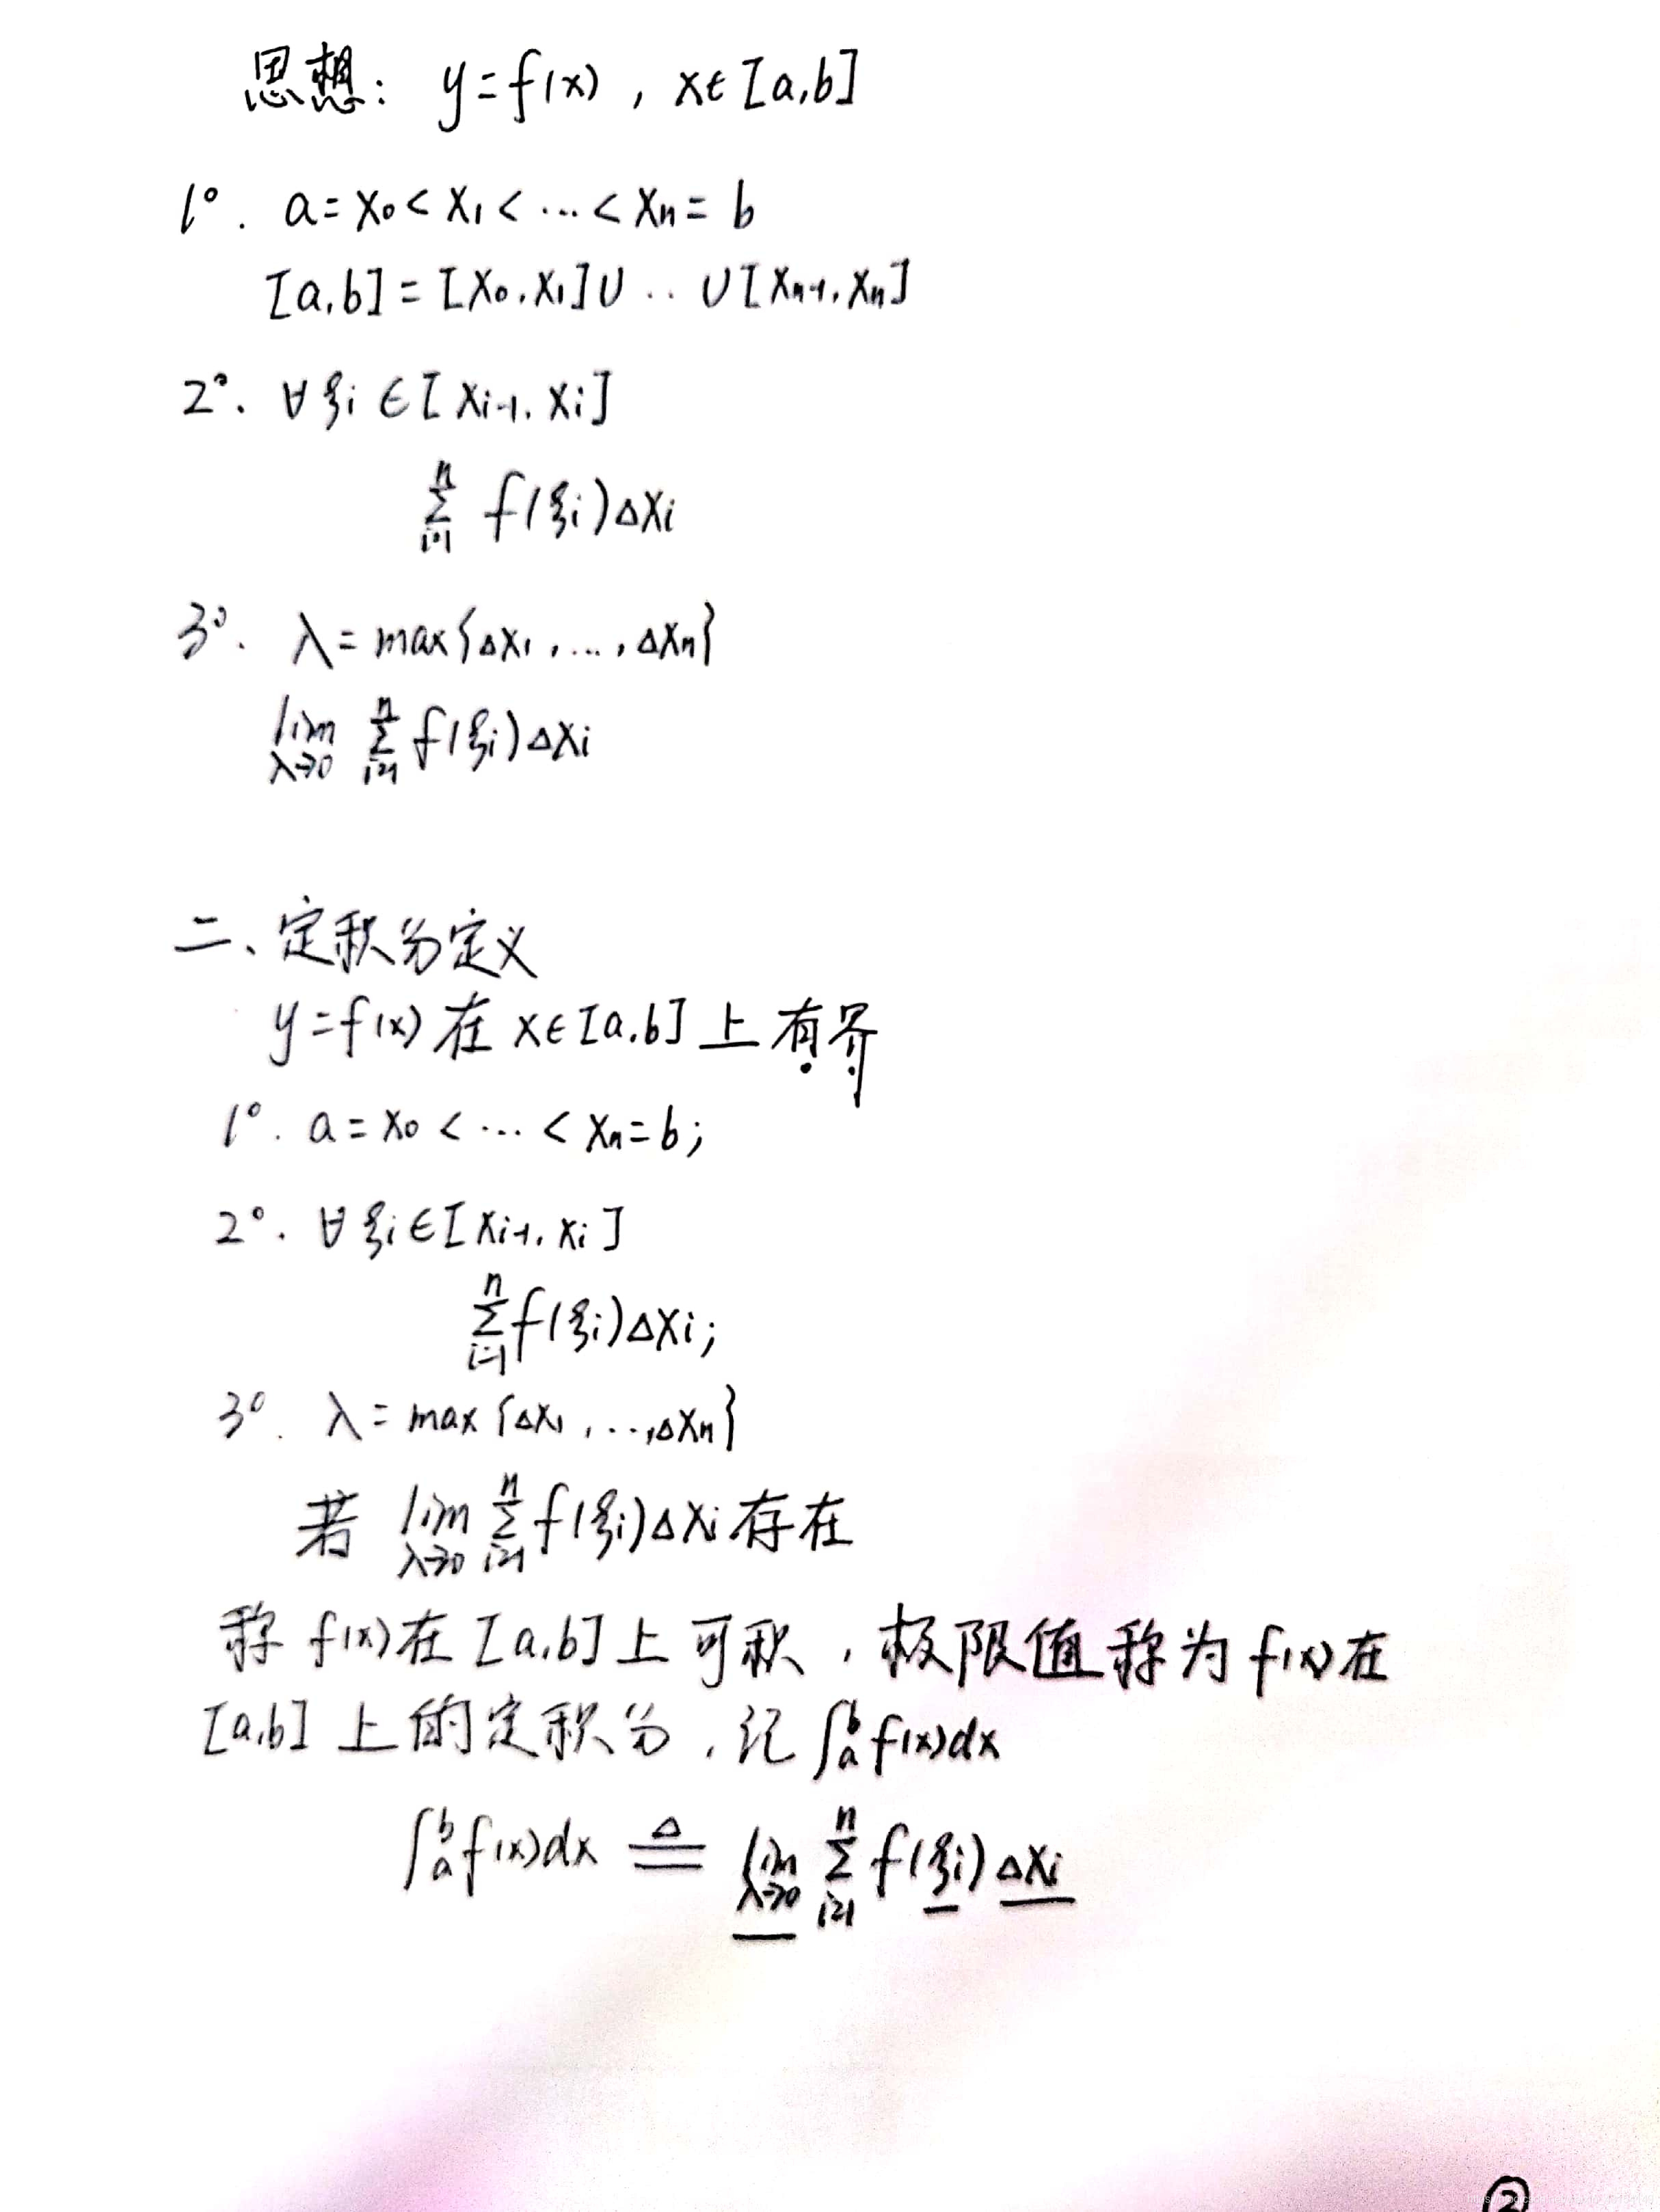 思想: y=f(x), x∈[a,b]
1°. a=x₀<x₁<…<xₙ=b
[a,b]=[x₀,x₁]∪..∪[xₙ₋₁,xₙ]
2°. ∀ξᵢ∈[xᵢ₋₁,xᵢ]
n
Σ f(ξᵢ)Δxᵢ
i=1
3°. λ=max{Δx₁,…,Δxₙ}
lim_{λ→0} Σ_{i=1}^{n} f(ξᵢ)Δxᵢ
二、定积分定义
y=f(x)在x∈[a,b]上有界
1°. a=x₀<…<xₙ=b;
2°. ∀ξᵢ∈[xᵢ₋₁,xᵢ]
Σ_{i=1}^{n} f(ξᵢ)Δxᵢ;
3°. λ=max{Δx₁,…,Δxₙ}
若 lim_{λ→0} Σ_{i=1}^{n} f(ξᵢ)Δxᵢ存在
称f(x)在[a,b]上可积,极限值称为f(x)在
[a,b]上的定积分,记∫ₐᵇf(x)dx
∫ₐᵇf(x)dx ≜ lim_{λ→0} Σ_{i=1}^{n} f(ξᵢ)Δxᵢ
②